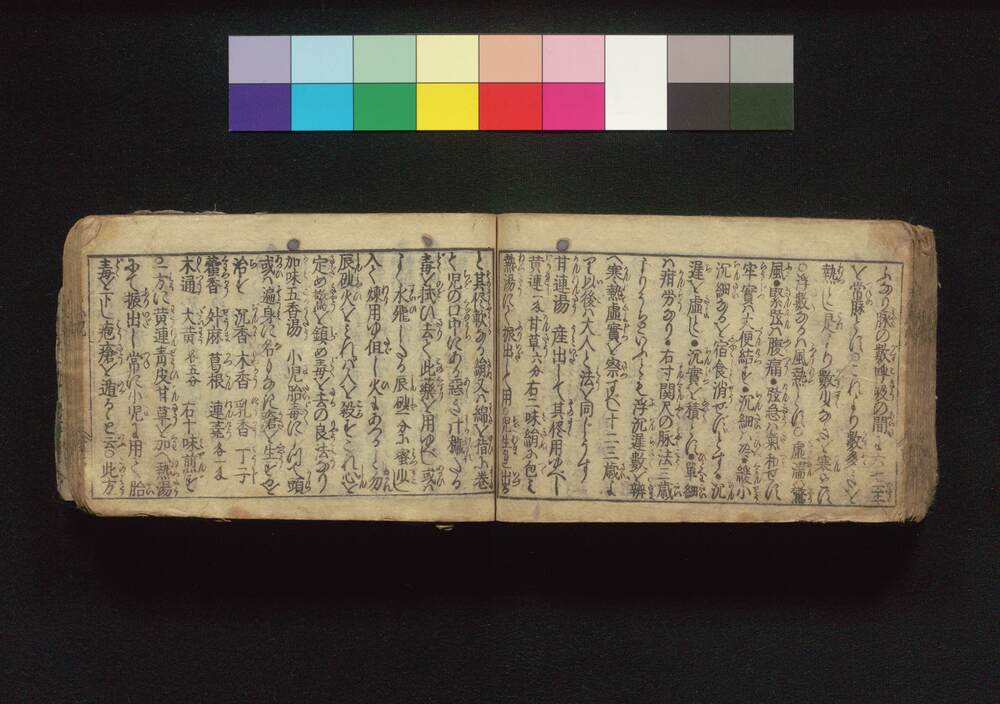 ふなり脉の数呼殺の間に六七至
を常脉とすこれより数多きを
熱とし是より数少なきを寒とす
○浮数なるハ風熱とす 虚濡驚
風●緊弦ハ腹痛●弦急ハ氣和せず
牢實ハ大便結す●沉細ハ冷●緩小
沉細なるを宿食消せずとす●沉
遅を虚とし●沉實を積とし●單細
ハ疳労なり●右寸関尺の脉法三歳
よりうかゞいふくも浮沉遅数を辨
へ寒熱虚實を察すべし十二三歳よ
り以後ハ大人と法を同じうす
甘連湯 産出して其侭用ゆべし
黄連一匁甘草六分右二味絹に包ミ
熱湯にて振出して用 児生まれ出る
と其侭軟なる絹又ハ綿を指に巻
く児の口中にある惡しき汁穢たる
毒を拭ひ去て此藥を用ゆべし或ハ
よく水飛したる辰砂一分に蜜少し
入て煉用ゆ但し火にあつべし勿
辰砂火をミれバ人を殺すこれ心を
定め驚を鎮め毒を去の良法なり
加味五香湯 小児胎毒にて頭
或ハ遍身に名もなき瘡を生るを
治す 沉香 木香 乳香 丁子
藿香 舛麻 葛根 連蕘各一匁
木通 大黄各五分 右十味煎ず
又方に黄連青皮甘草を加へ熱湯
にて振出し常に小児に用て胎
毒を下し疱瘡を遁ると云○此方